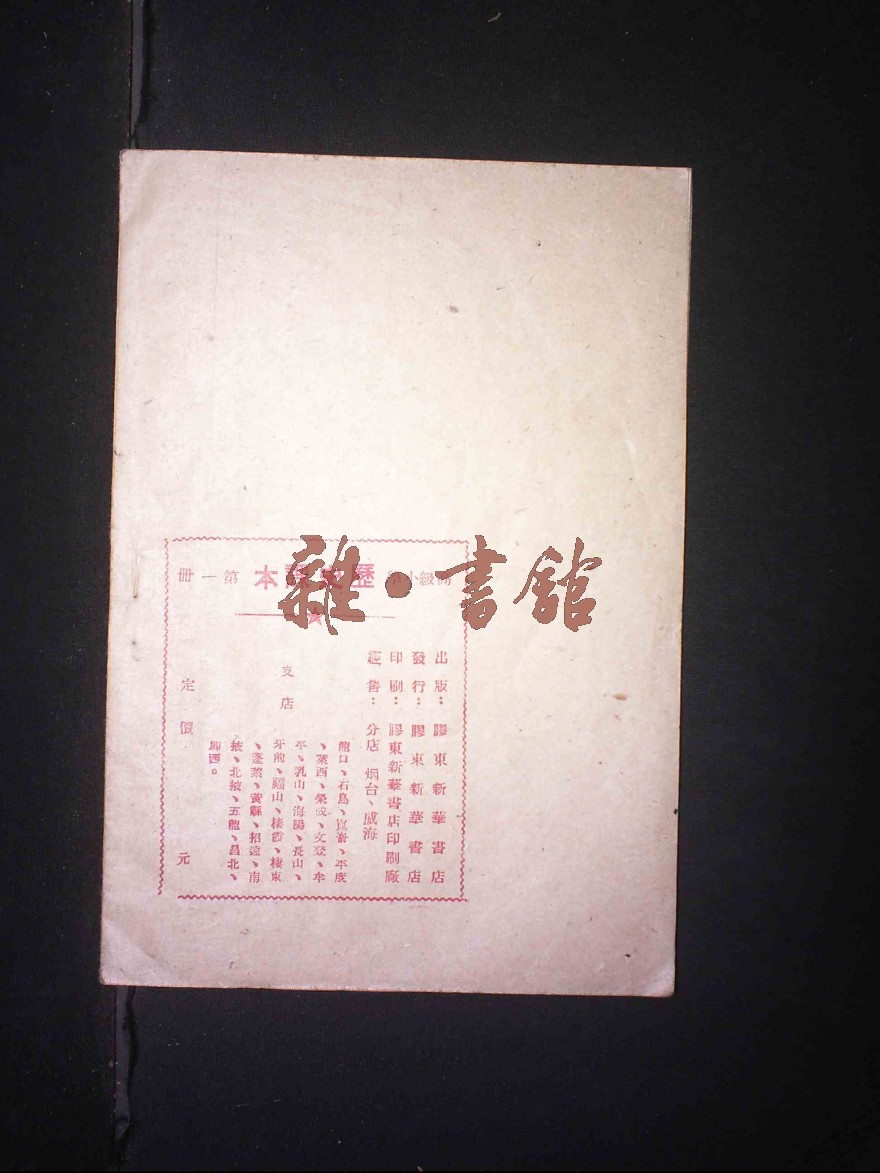 高級小學 歷史課本 第一册
雜·書館
出版：膠東新華書店
發行：膠東新華書店
印刷：膠東新華書店印刷廠
經售：分店 烟台、威海
支店
龍口、石島、崑嵛、平度
、萊西、榮成、文登、牟
平、乳山、海陽、長山、
牙前、福山、棲霞、棲東
、蓬萊、黃縣、招遠、南
掖、北掖、五龍、昌北、
即西。
定價 元